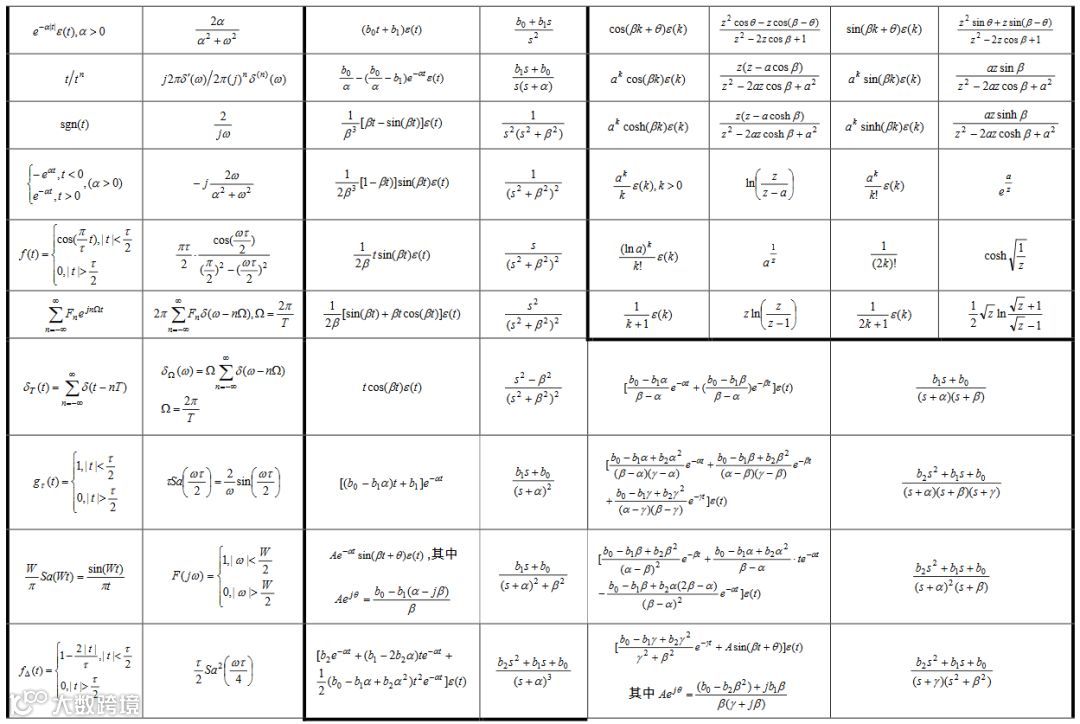 e^{-α|t|}ε(t), α > 0 | 2α/(α²+ω²) | (b₀t+b₁)ε(t) | (b₀+b₁s)/s² | cos(βk+θ)ε(k) | (z²cosθ−zcos(β−θ))/(z²−2zcosβ+1) | sin(βk+θ)ε(k) | (z²sinθ+zsin(β−θ))/(z²−2zcosβ+1)
t/tⁿ | j2πδ'(ω)/2π(j)ⁿδ^{(n)}(ω) | b₀/α−(b₀/α−b₁)e^{-αt}ε(t) | (b₁s+b₀)/(s(s+α)) | a^k cos(βk)ε(k) | z(z−acosβ)/(z²−2azcosβ+a²) | a^k sin(βk)ε(k) | azsinβ/(z²−2azcosβ+a²)
sgn(t) | 2/(jω) | 1/β³[βt−sin(βt)]ε(t) | 1/(s²(s²+β²)) | a^k cosh(βk)ε(k) | z(z−acoshβ)/(z²−2azcoshβ+a²) | a^k sinh(βk)ε(k) | azsinhβ/(z²−2azcoshβ+a²)
{−e^{αt}, t<0; e^{-αt}, t>0, (α>0) | −j 2ω/(α²+ω²) | 1/(2β³)[1−βt)]sin(βt)ε(t) | 1/(s²+β²)² | a^k/k ε(k), k>0 | ln(z/(z−a)) | a^k/k! ε(k) | e^{a/z}
f(t)={cos(π/τ t), |t|<τ/2; 0, |t|>τ/2 | πτ/2 · cos(ωτ/2)/((π/2)²−(ωτ/2)²) | 1/(2β) tsin(βt)ε(t) | s/(s²+β²)² | (ln a)^k/k! ε(k) | a^{1/z} | 1/(2k)! | cosh√(1/z)
∑_{n=−∞}^{∞} F_n e^{jnΩt} | 2π∑_{n=−∞}^{∞} F_nδ(ω−nΩ), Ω=2π/T | 1/(2β)[sin(βt)+βtcos(βt)]ε(t) | s²/(s²+β²)² | 1/(k+1) ε(k) | z ln(z/(z−1)) | 1/(2k+1) ε(k) | 1/2 √z ln (√z+1)/(√z−1)
δ_T(t)=∑_{n=−∞}^{∞} δ(t−nT) | δ_Ω(ω)=Ω∑_{n=−∞}^{∞} δ(ω−nΩ) Ω=2π/T | tcos(βt)ε(t) | (s²−β²)/(s²+β²)² | [(b₀−b₁α)/(β−α) e^{-αt}+((b₀−b₁β)/(β−α))e^{-βt}]ε(t) | (b₁s+b₀)/((s+α)(s+β))
g_τ(t)={1, |t|<τ/2; 0, |t|>τ/2 | τSa(ωτ/2)=2/ω sin(ωτ/2) | [(b₀−b₁α)t+b₁]e^{-αt} | (b₁s+b₀)/(s+α)² | [(b₀−b₁α+b₂α²)/((β−α)(γ−α)) e^{-αt}+(b₀−b₁β+b₂β²)/((α−β)(γ−β)) e^{-βt} +(b₀−b₁γ+b₂γ²)/((α−γ)(β−γ)) e^{-γt}]ε(t) | (b₂s²+b₁s+b₀)/((s+α)(s+β)(s+γ))
W/π Sa(Wt)=sin(Wt)/(πt) | F(jω)={1, |ω|<W/2; 0, |ω|>W/2 | Ae^{-αt}sin(βt+θ)ε(t) ,其中 Ae^{jθ}=(b₀−b₁(α−jβ))/β | (b₁s+b₀)/((s+α)²+β²) | [(b₀−b₁β+b₂β²)/(α−β)² e^{-βt}+(b₀−b₁α+b₂α²)/(β−α)·te^{-αt} −(b₀−b₁β+b₂α(2β−α))/(β−α)² e^{-αt}]ε(t) | (b₂s²+b₁s+b₀)/((s+α)²(s+β))
f_Δ(t)={1−2|t|/τ, |t|<τ/2; 0, |t|>τ/2 | τ/2 Sa²(ωτ/4) | [b₂e^{-αt}+(b₁−2b₂α)te^{-αt}+1/2(b₀−b₁α+b₂α²)t²e^{-αt}]ε(t) | (b₂s²+b₁s+b₀)/(s+α)³ | [(b₀−b₁γ+b₂γ²)/(γ²+β²) e^{-γt}+Asin(βt+θ)]ε(t) 其中 Ae^{jθ}=((b₀−b₂β²)+jb₁β)/(β(γ+jβ)) | (b₂s²+b₁s+b₀)/((s+γ)(s²+β²))
大数跨境